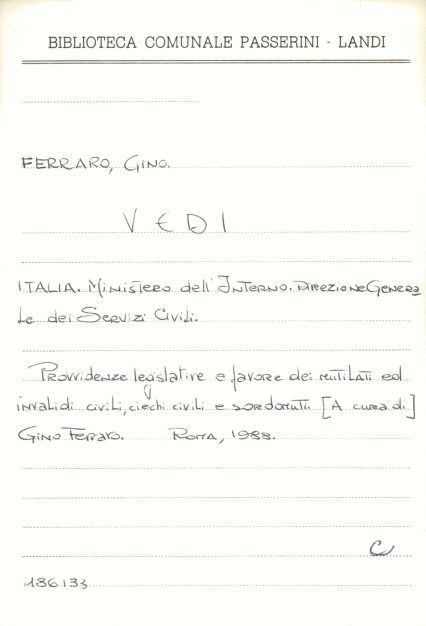 BIBLIOTECA COMUNALE PASSERINI - LANDI
FERRARO, GINO.
VEDI
ITALIA. Ministero dell'Interno. Direzione Genera
le dei Servizi Civili.
Provvidenze legislative e favore dei mutilati ed
invalidi civili, ciechi civili e sordomuti [A cura di]
Gino Ferraro. Roma, 1988.
C
186133